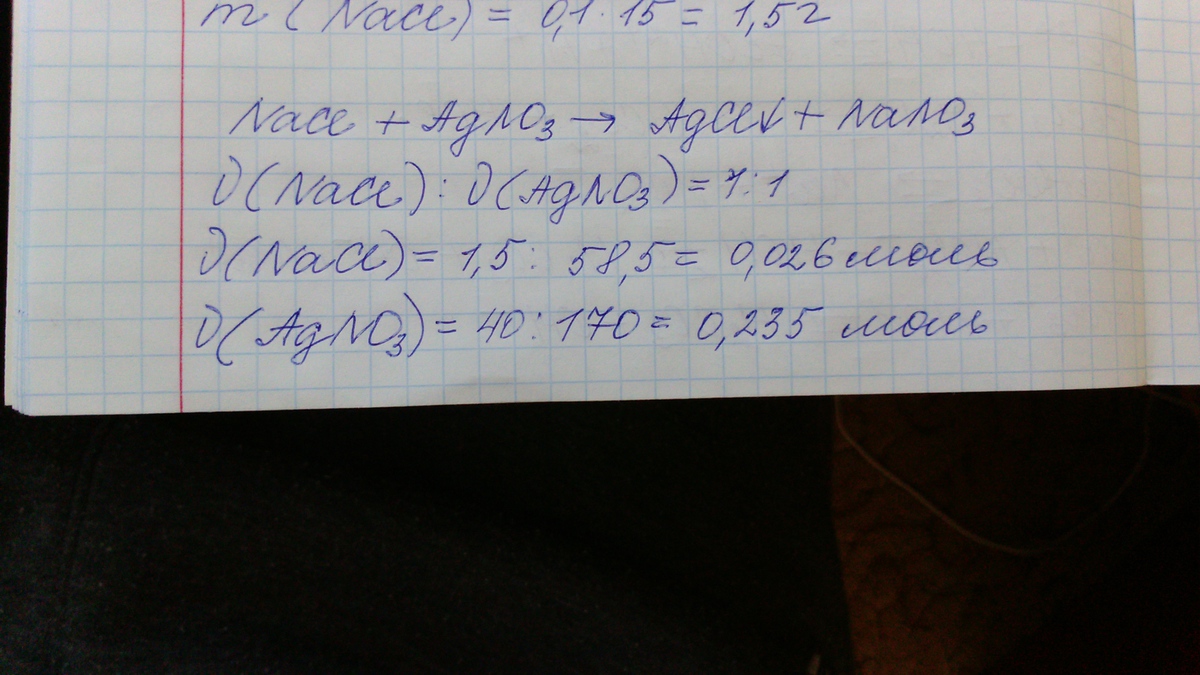 m(NaCl) = 0,1·15 = 1,5г
NaCl + AgNO₃ → AgCl↓ + NaNO₃
ν(NaCl) : ν(AgNO₃) = 1:1
ν(NaCl) = 1,5 : 58,5 = 0,026 моль
ν(AgNO₃) = 40 : 170 = 0,235 моль